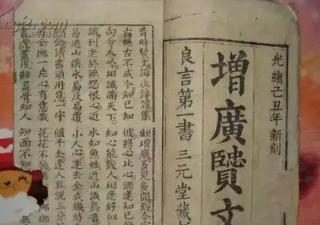 光緒己丑年新刻
增廣賢文
良言第一書三元堂藏
昔時賢文誨汝諄諄集韻增廣多見多聞觀今宜
古無古不成今知己知彼將心比心酒逢知己飲
向會人吟相識滿天下知心能幾人相逢好似
相識到老終無怨恨心近水知魚性近山識鳥音
易退山溪水易反易覆小人心運去金成鐵時
似金讀書須用意一字值千金逢人且說三分
全拋一片心有意栽花花不發無心
畫虎畫皮難畫骨知人知面不知